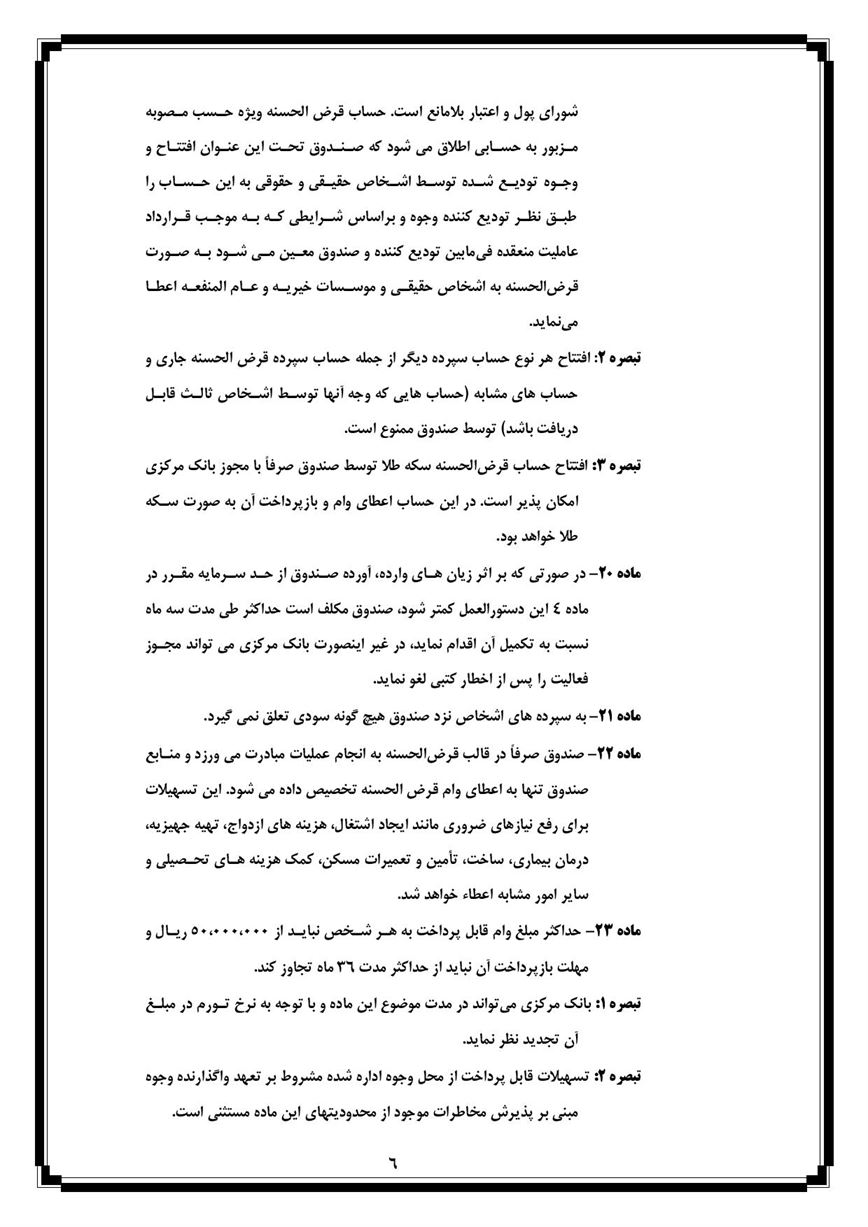 شورای پول و اعتبار بلامانع است. حساب قرض الحسنه ویژه حسب مصوبه
مزبور به حسابی اطلاق می شود که صندوق تحت این عنوان افتتاح و
وجوه تودیع شده توسط اشخاص حقیقی و حقوقی به این حساب را
طبق نظر تودیع کننده وجوه و براساس شرایطی که به موجب قرارداد
عاملیت منعقده فی‌مابین تودیع کننده و صندوق معین می شود به صورت
قرض‌الحسنه به اشخاص حقیقی و موسسات خیریه و عام المنفعه اعطا
می‌نماید.
تبصره ۲: افتتاح هر نوع حساب سپرده دیگر از جمله حساب سپرده قرض الحسنه جاری و
حساب های مشابه (حساب هایی که وجه آنها توسط اشخاص ثالث قابل
دریافت باشد) توسط صندوق ممنوع است.
تبصره ۳: افتتاح حساب قرض‌الحسنه سکه طلا توسط صندوق صرفاً با مجوز بانک مرکزی
امکان پذیر است. در این حساب اعطای وام و بازپرداخت آن به صورت سکه
طلا خواهد بود.
ماده ۲۰– در صورتی که بر اثر زیان های وارده، آورده صندوق از حد سرمایه مقرر در
ماده ٤ این دستورالعمل کمتر شود، صندوق مکلف است حداکثر طی مدت سه ماه
نسبت به تکمیل آن اقدام نماید، در غیر اینصورت بانک مرکزی می تواند مجوز
فعالیت را پس از اخطار کتبی لغو نماید.
ماده ۲۱– به سپرده های اشخاص نزد صندوق هیچ گونه سودی تعلق نمی گیرد.
ماده ۲۲– صندوق صرفاً در قالب قرض‌الحسنه به انجام عملیات مبادرت می ورزد و منابع
صندوق تنها به اعطای وام قرض الحسنه تخصیص داده می شود. این تسهیلات
برای رفع نیازهای ضروری مانند ایجاد اشتغال، هزینه های ازدواج، تهیه جهیزیه،
درمان بیماری، ساخت، تأمین و تعمیرات مسکن، کمک هزینه های تحصیلی و
سایر امور مشابه اعطاء خواهد شد.
ماده ۲۳– حداکثر مبلغ وام قابل پرداخت به هر شخص نباید از ۵۰،۰۰۰،۰۰۰ ریال و
مهلت بازپرداخت آن نباید از حداکثر مدت ۳٦ ماه تجاوز کند.
تبصره ۱: بانک مرکزی می‌تواند در مدت موضوع این ماده و با توجه به نرخ تورم در مبلغ
آن تجدید نظر نماید.
تبصره ۲: تسهیلات قابل پرداخت از محل وجوه اداره شده مشروط بر تعهد واگذارنده وجوه
مبنی بر پذیرش مخاطرات موجود از محدودیتهای این ماده مستثنی است.
٦